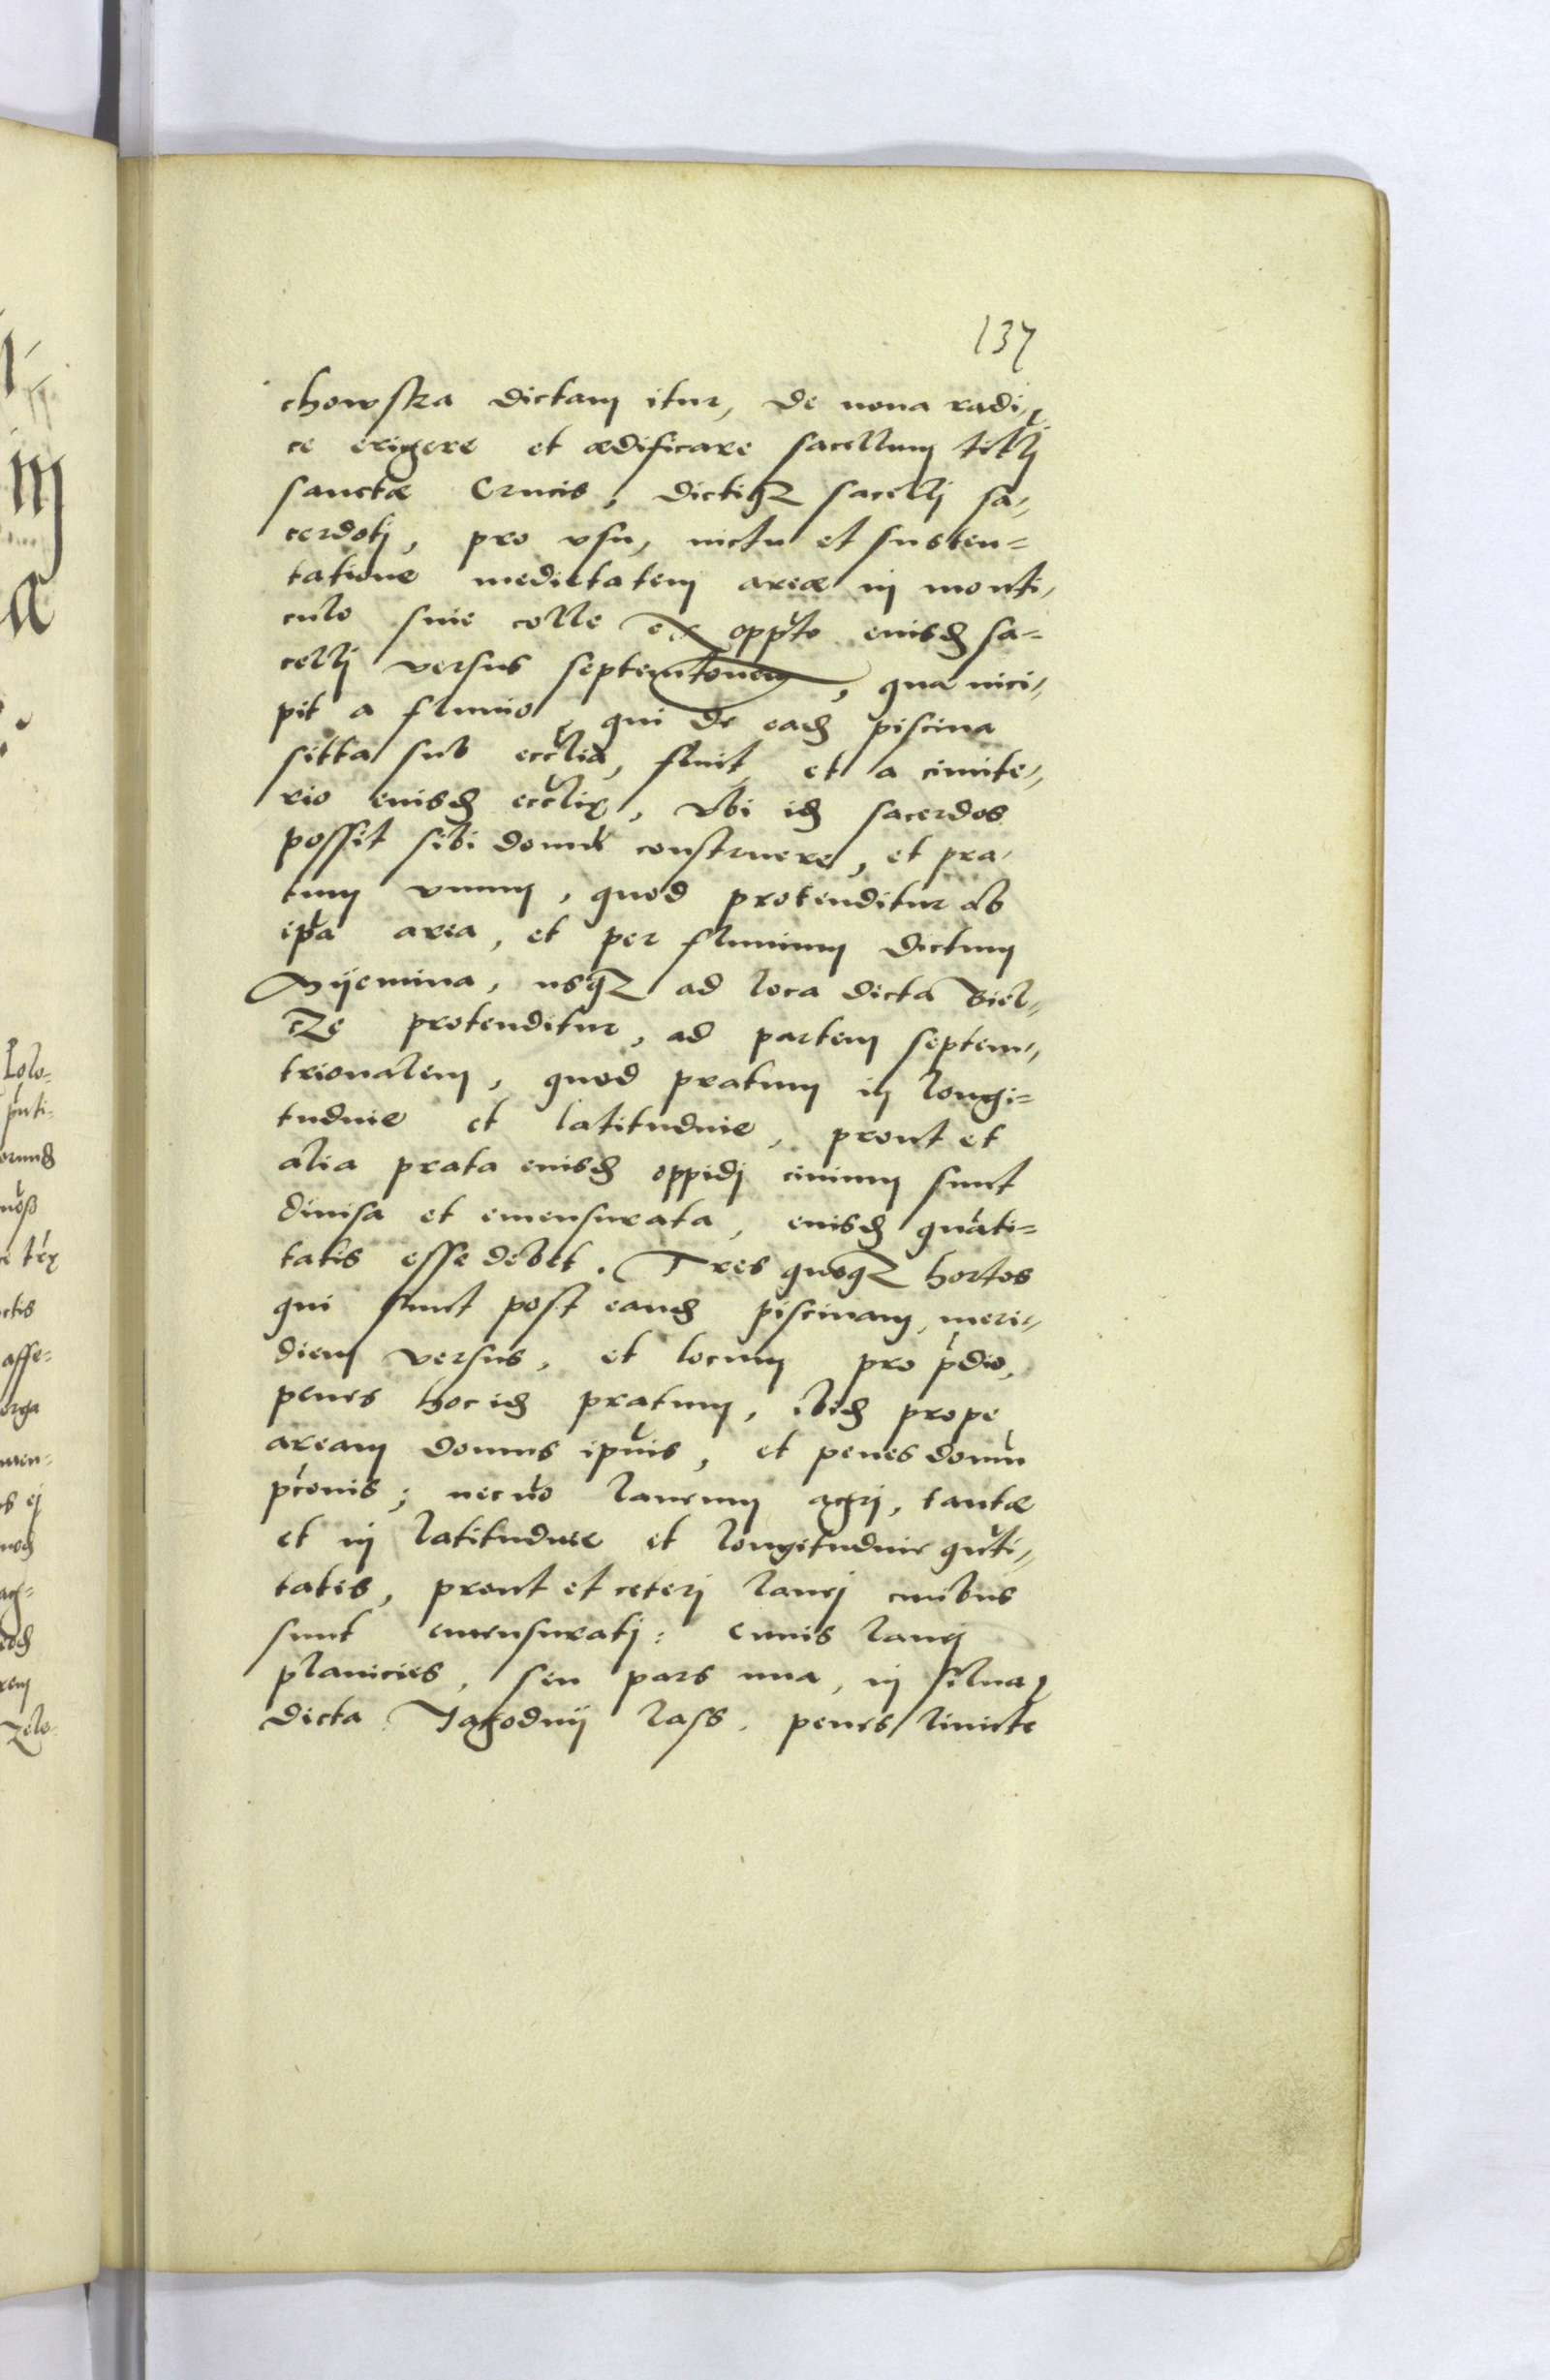 137
chowska dictam itur, de noua radi,,
ce erigere et ædificare sacellum titlj
sanctæ Crucis, dictiqz sacellj sa,,
cerdotj, pro vsu, uictu et susten=
tatione medietatem areæ in monti,,
culo siue colle ex opp̃to eiusd sa=
cellj versus septemtonem, qua inci,,
pit a fluuio, qui de ead piscina
sitta sub eccl̃ia, fluit, et a cimite,,
rio eiusd eccl̃iæ, vbi id sacerdos
possit sibi domũ construere, et pra,,
tum vnum, quod protenditur ab
ip̃a area, et per fluuium dictum
Niiemina, usqz ad loca dicta Biel,,
cze protenditur, ad partem septem,,
trionalem, quod pratum in longi=
tudine et latitudine, prout et
alia prata eiusd oppidj ciuium sunt
diuisa et emensurata, eiusd quãti=
tatis esse debet. Tres quoqz hortos
qui sunt post eand piscinam, meri,,
diem versus, et locum pro p̃dio,
penes hoc id pratum, ibid prope
aream domus ip̃uis, et penes domũ
p̃conis; necno laneum agrj, tantæ
et in latitudine et longitudine qũti,,
tatis, prout et ceterj lanej ciuibus
sunt emensuratj: cuius lanej
planicies, seu pars una, in silua
dicta Jagodnij lass, penes limite